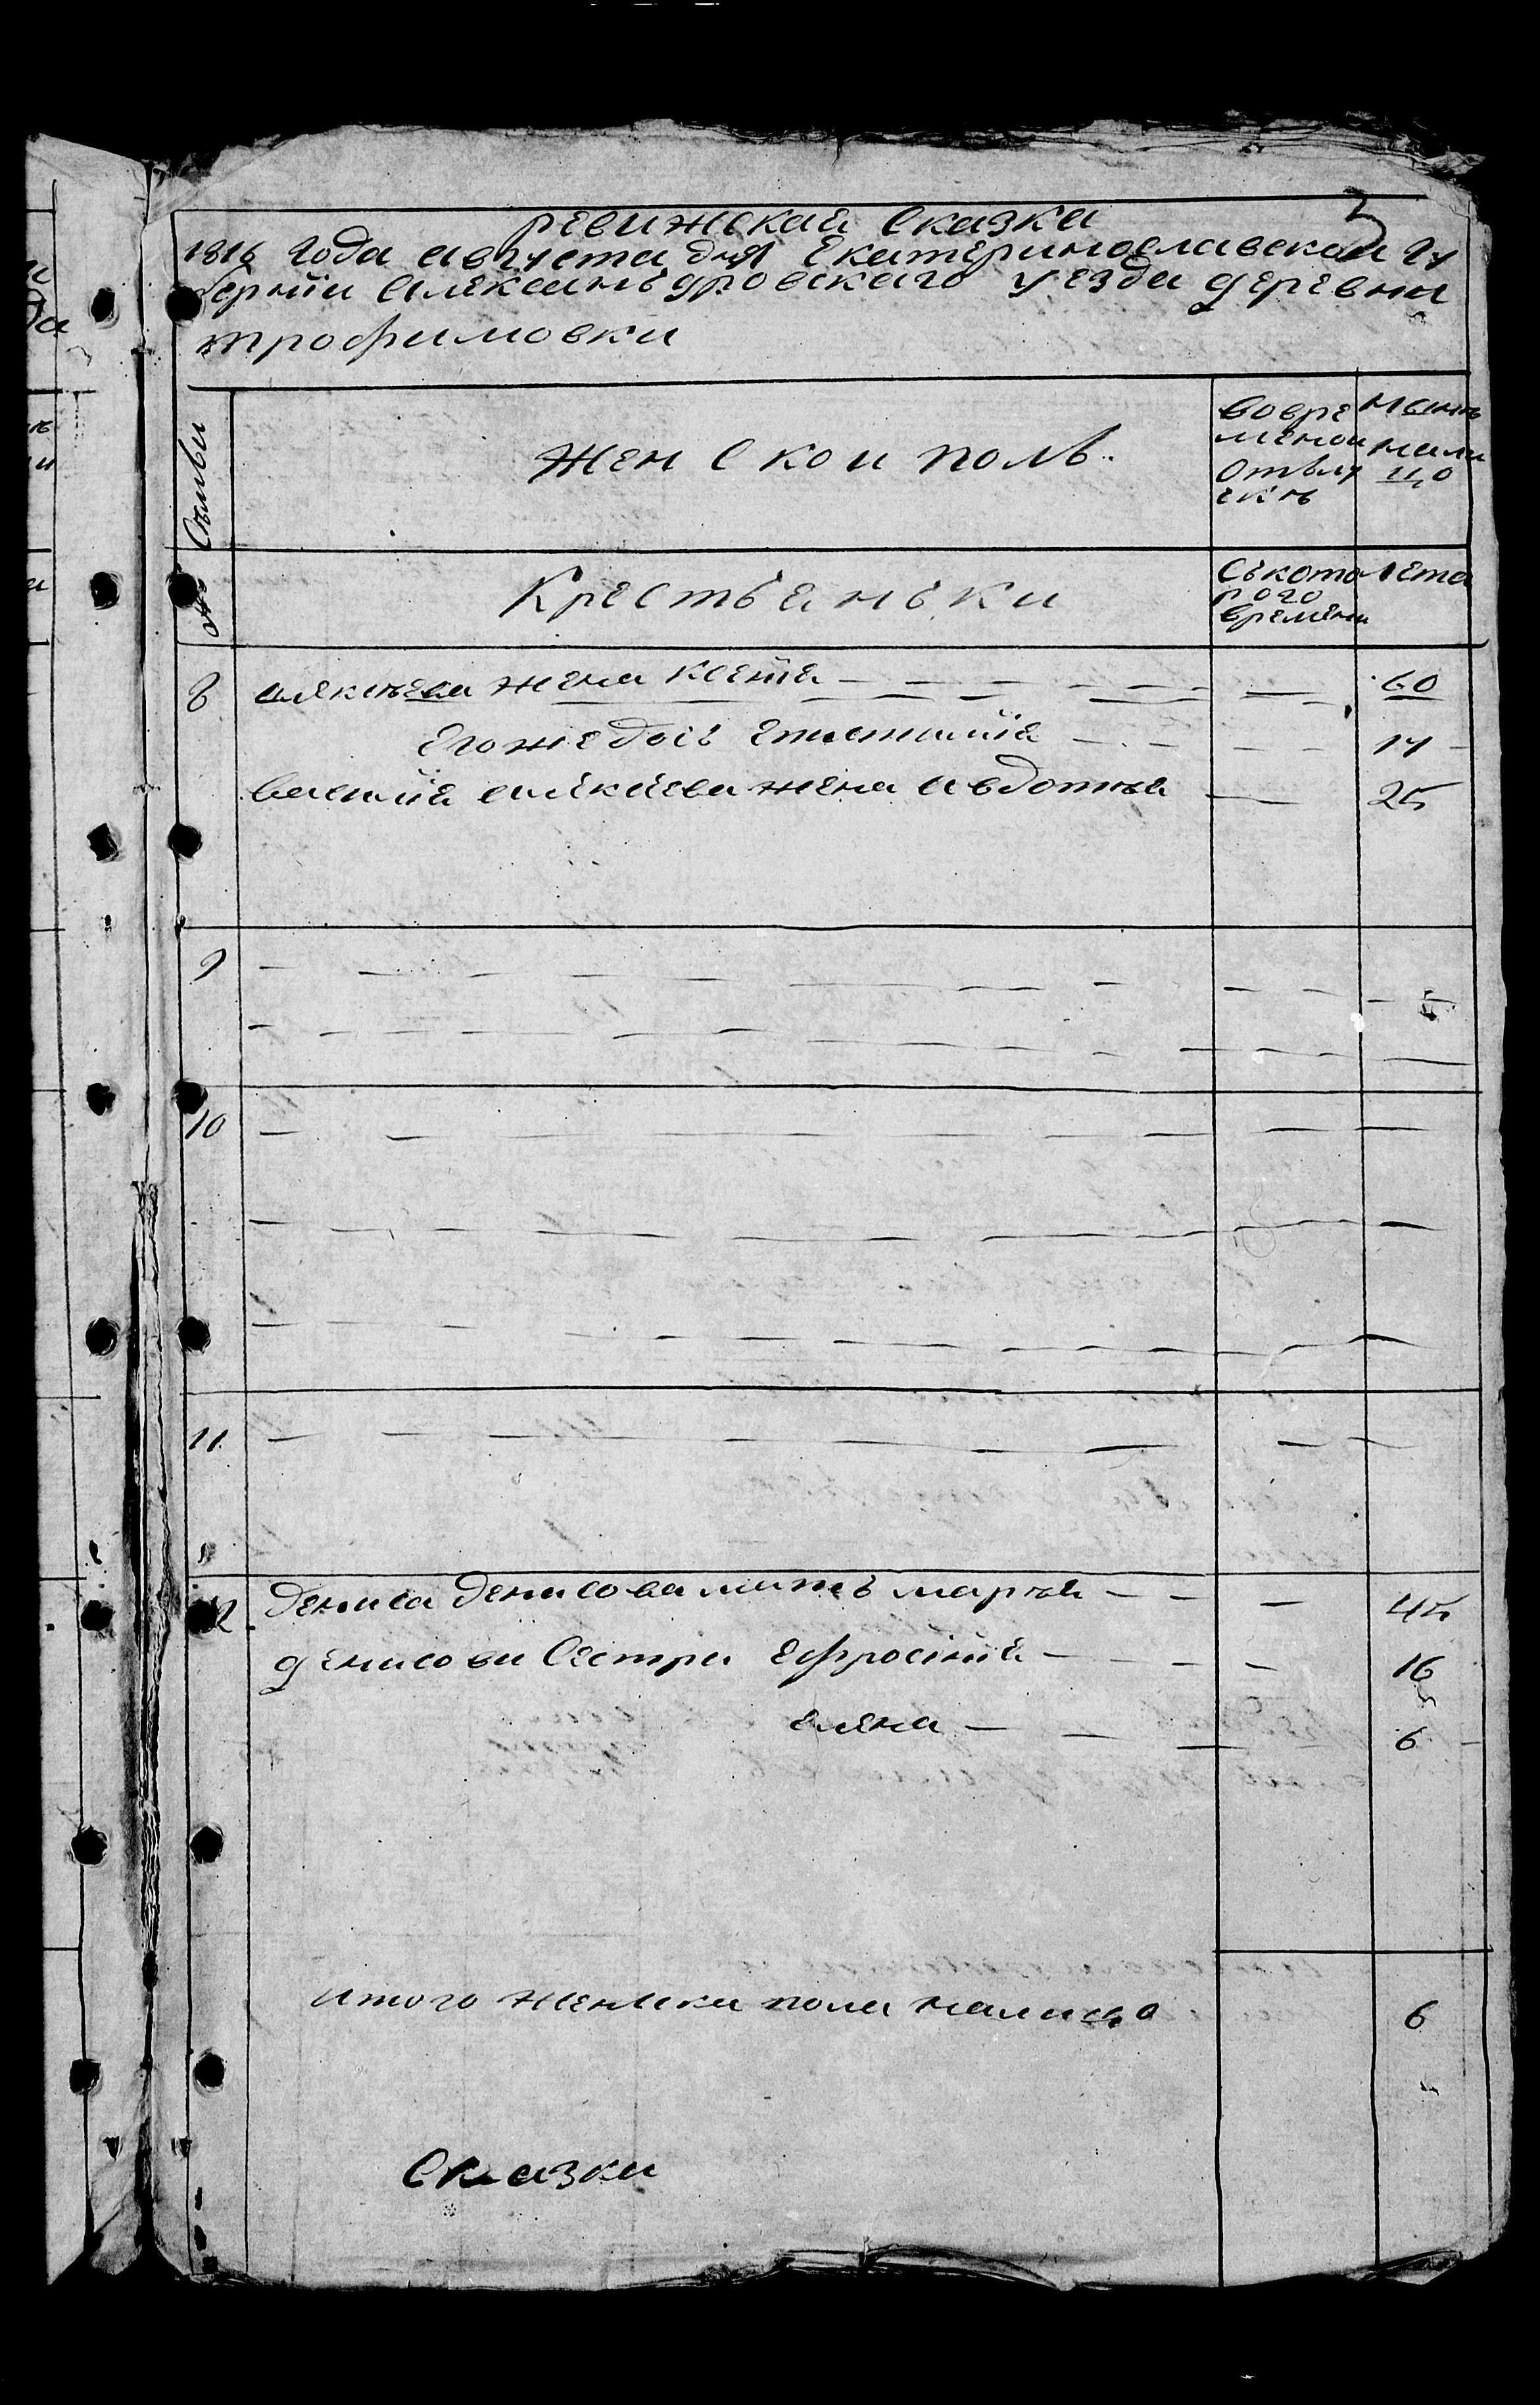 ревижская сказка
1816 года августа дня Екатеринославской гу
берніи Алексанъдровскаго уезда деревни
трофимовки
№ Семьи
Женской полъ.
Вовре
менои
отълу
чкѣ
Нынѣ
нали
цо
Крестьянъки
Съкото
рого
времени
лета
8 жена Ксенія 60
Его же дочь 14
жена Авдотья 25
9
10
11
12 Дениса Денисова мать Марѳа 45
Денисови Сестри Ефросінія 16
Елена 6
итого женска пола налицо 6
Сказки